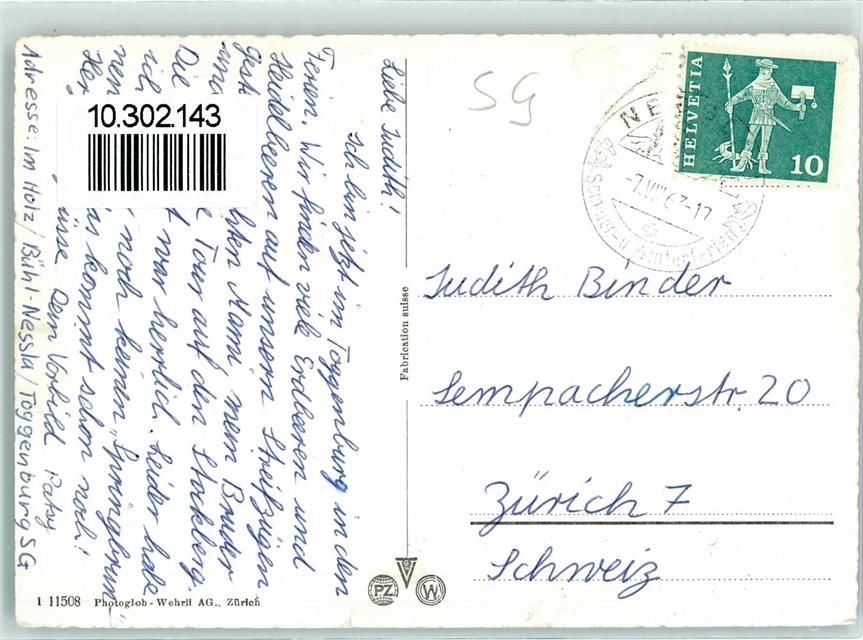 Liebe Judith!
Ich bin jetzt im Toggenburg in den
Ferien. Wir finden viele Erdbeeren und
Heidelbeeren auf unsern Streifzügen
Gest hten Mami, mein Bruder
und e Tour auf den Stockberg.
Die t war herrlich. Leider habe
ich noch keinen „Springbrun-
nen as kommt schon noch!
Her üsse Dein Vorbild Patsy
Adresse: Im Holz / Bühl-Nesslau / Toggenburg SG
10.302.143
1 11508 Photoglob-Wehrli AG., Zürich
Fabrication suisse
PZ W
SG
HELVETIA
10
NE
-7.VIII 67-17
Sommer- u. Winterferien
Judith Binder
Sempacherstr. 20
Zürich 7
Schweiz